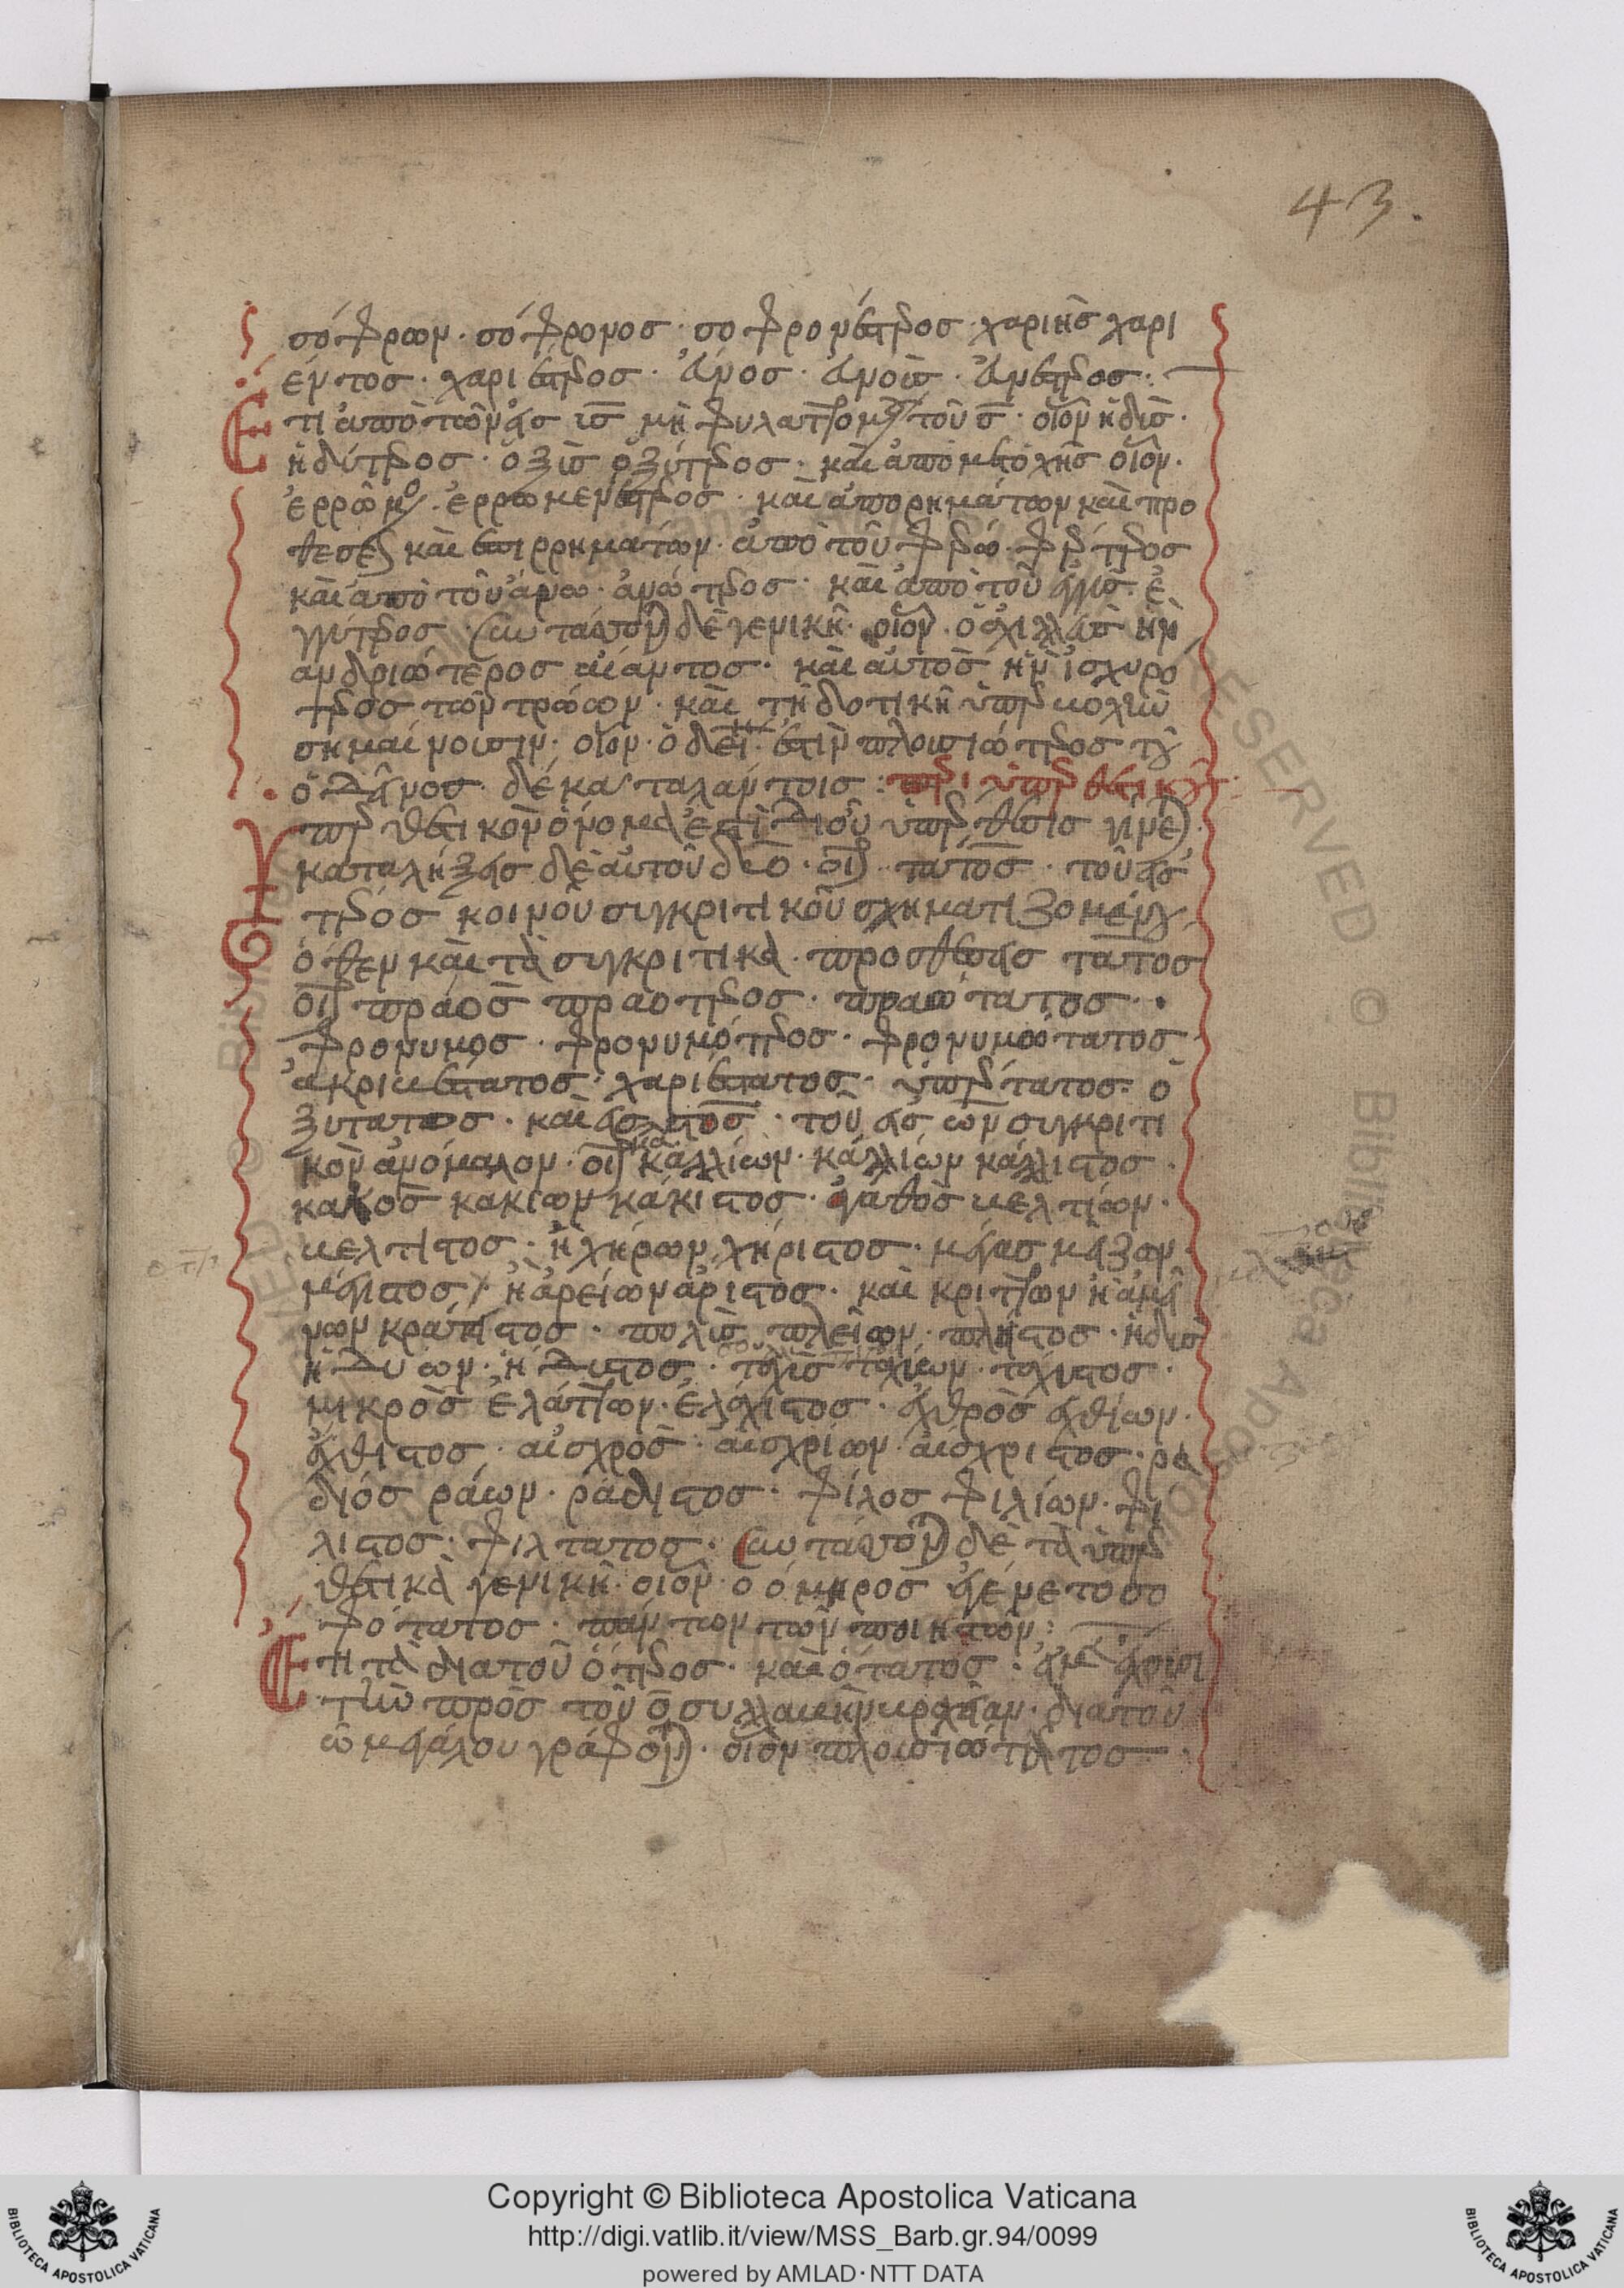 43.
σόφρων. σόφρονος. σοφρονέστερος. χαριεὶς χαρι
έντος. χαριέστερος.
ἔτι ἀπὸ τῶν εἰς υς μὴ φυλαττομένου τοῦ ς. οἷον ἡδὺς.
ἡδύτερος. ὀξὺς ὀξύτερος. καὶ ἀπὸ μετοχῆς οἷον.
ἐρρωμένος. ἐρρωμενέστερος. καὶ ἀπὸ ρημάτων καὶ προ
θέσεως καὶ ἐπιρρημάτων. ἀπὸ τοῦ φέρω. φέρτερος
καὶ ἀπὸ τοῦ ἄνω. ἀνώτερος. καὶ ἀπὸ τοῦ ἐγγὺς. ἐ
γγύτερος. συντάσσονται δὲ γενικῆ. οἷον. ὁ ἀχιλλεὺς ἦν
ανδριώτερος αἴαντος. καὶ αὐτὸς ἦν ἰσχυρό
τερος τῶν τρώων. καὶ τῆ δοτικῆ ὑπερβολὴν
σημαίνουσιν. οἷον. ὁ δεῖνα ἐστὶν πλουσιώτερος τοῦ
ὁ δεῖνος δέκα ταλάντοις: περὶ ὑπερθετικοῦ:
Ὑπερθετικὸν ὄνομα ἐστὶ δι' οὗ ὑπέρθεσις γίνεται.
καταλήξεις δὲ αὐτοῦ δύο. οἷον τατος. τοῦ εἰς
τερος κοινοῦ συγκριτικοῦ σχηματιζομένου
ὅθεν καὶ τὰ συγκριτικὰ. προσθέσεις τατος
οἷον πράος πραότερος. πραώτατος.
φρόνυμος. φρονυμότερος. φρονυμώτατος
ἀκριβέστατος. χαριέστατος. ὑπέρτατος. ὀ
ξύτατος. καὶ εἰς στος. τοῦ εἰς ων συγκριτι
κὸν ἀνόμαλον. οἷον καλλίων. καλλίων κάλλιστος.
κακὸς κακίων κάκιστος. ἀγαθὸς βελτίων.
βέλτιστος. ἢ χήρων χήριστος. μέγας μείζων
μέγιστος. ἢ ἀρείων ἄριστος. καὶ κρίττων ἢ ἀμεί
νων κράτιστος. πολὺς πλείων. πλῆστος. ἡδὺς
ἡδύων. ἥδυστος. ταχὺς ταχίων. τάχιστος.
μικρὸς ἐλάττων. ἐλάχιστος. ἐχθρὸς ἐχθίων.
ἔχθιστος. αἰσχρὸς. αἰσχρίων. αἴσχριστος. ρά
διός ράων. ράδιστος. φίλος φιλίων. φί
λιστος. φίλτατος. συντάσσονται δὲ τὰ ὑπερ
θετικὰ γενικῆ. οἷον. ὁ ὅμηρος ἐγένετο σο
φότατος. πάντων τῶν ποιητῶν:
Ἔτι τὰ διὰ τοῦ ότερος. καὶ ότατος.
τὴν πρὸς τοῦ ο συλλαβὴν βραχεῖαν. διὰ τοῦ
ω μεγάλου γράφονται. οἷον πλουσιώτατος
Copyright © Biblioteca Apostolica Vaticana
http://digi.vatlib.it/view/MSS_Barb.gr.94/0099
powered by AMLAD·NTT DATA
BIBLIOTECA APOSTOLICA VATICANA
BIBLIOTECA APOSTOLICA VATICANA